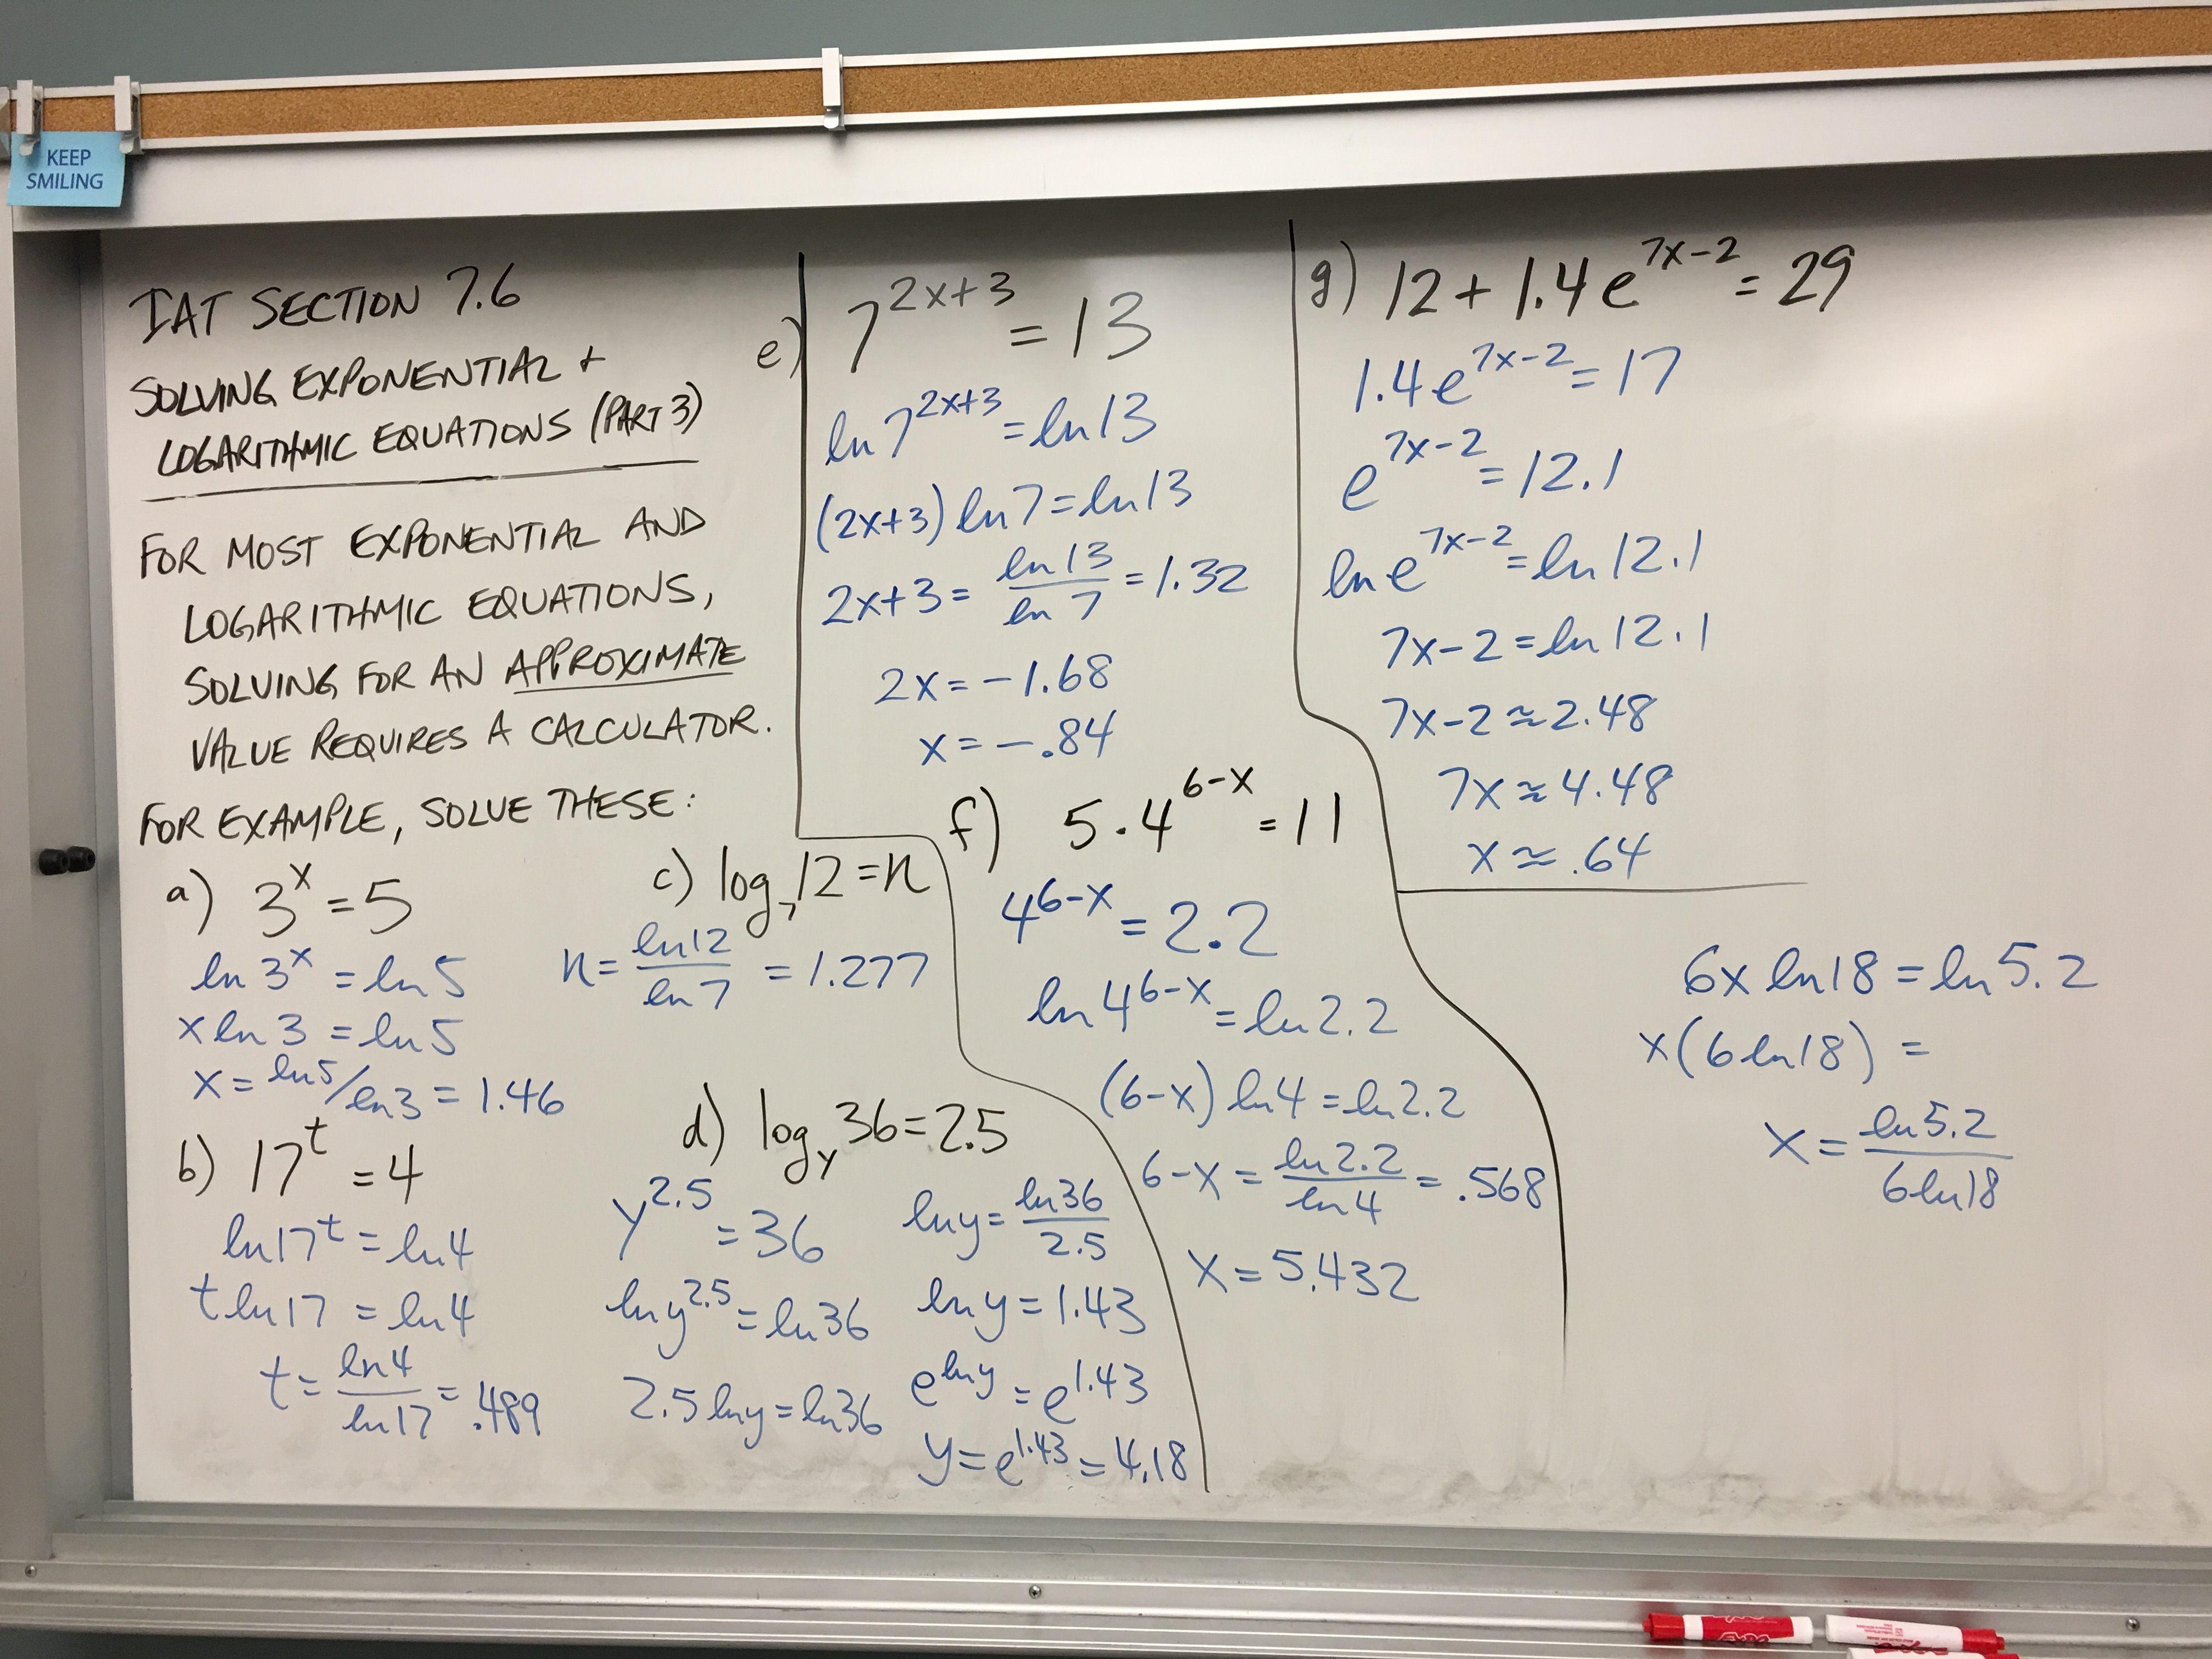 KEEP
SMILING
IAT SECTION 7.6
SOLVING EXPONENTIAL +
LOGARITHMIC EQUATIONS (PART 3)
FOR MOST EXPONENTIAL AND
LOGARITHMIC EQUATIONS,
SOLVING FOR AN APPROXIMATE
VALUE REQUIRES A CALCULATOR.
FOR EXAMPLE, SOLVE THESE:
a) 3^x = 5
ln 3^x = ln 5
x ln 3 = ln 5
x = ln 5/ln 3 = 1.46
b) 17^t = 4
ln 17^t = ln 4
t ln 17 = ln 4
t = ln 4/ln 17 = .489
c) log_7 12 = n
n = ln 12/ln 7 = 1.277
d) log_y 36 = 2.5
y^2.5 = 36
ln y^2.5 = ln 36
2.5 ln y = ln 36
ln y = ln 36/2.5
ln y = 1.43
e^ln y = e^1.43
y = e^1.43 = 4.18
e) 7^(2x+3) = 13
ln 7^(2x+3) = ln 13
(2x+3) ln 7 = ln 13
2x+3 = ln 13/ln 7 = 1.32
2x = -1.68
x = -.84
f) 5·4^(6-x) = 11
4^(6-x) = 2.2
ln 4^(6-x) = ln 2.2
(6-x) ln 4 = ln 2.2
6-x = ln 2.2/ln 4 = .568
x = 5.432
g) 12 + 1.4e^(7x-2) = 29
1.4e^(7x-2) = 17
e^(7x-2) = 12.1
ln e^(7x-2) = ln 12.1
7x-2 = ln 12.1
7x-2 ≈ 2.48
7x ≈ 4.48
x ≈ .64
6x ln 18 = ln 5.2
x(6 ln 18) =
x = ln 5.2/6 ln 18
EXPO